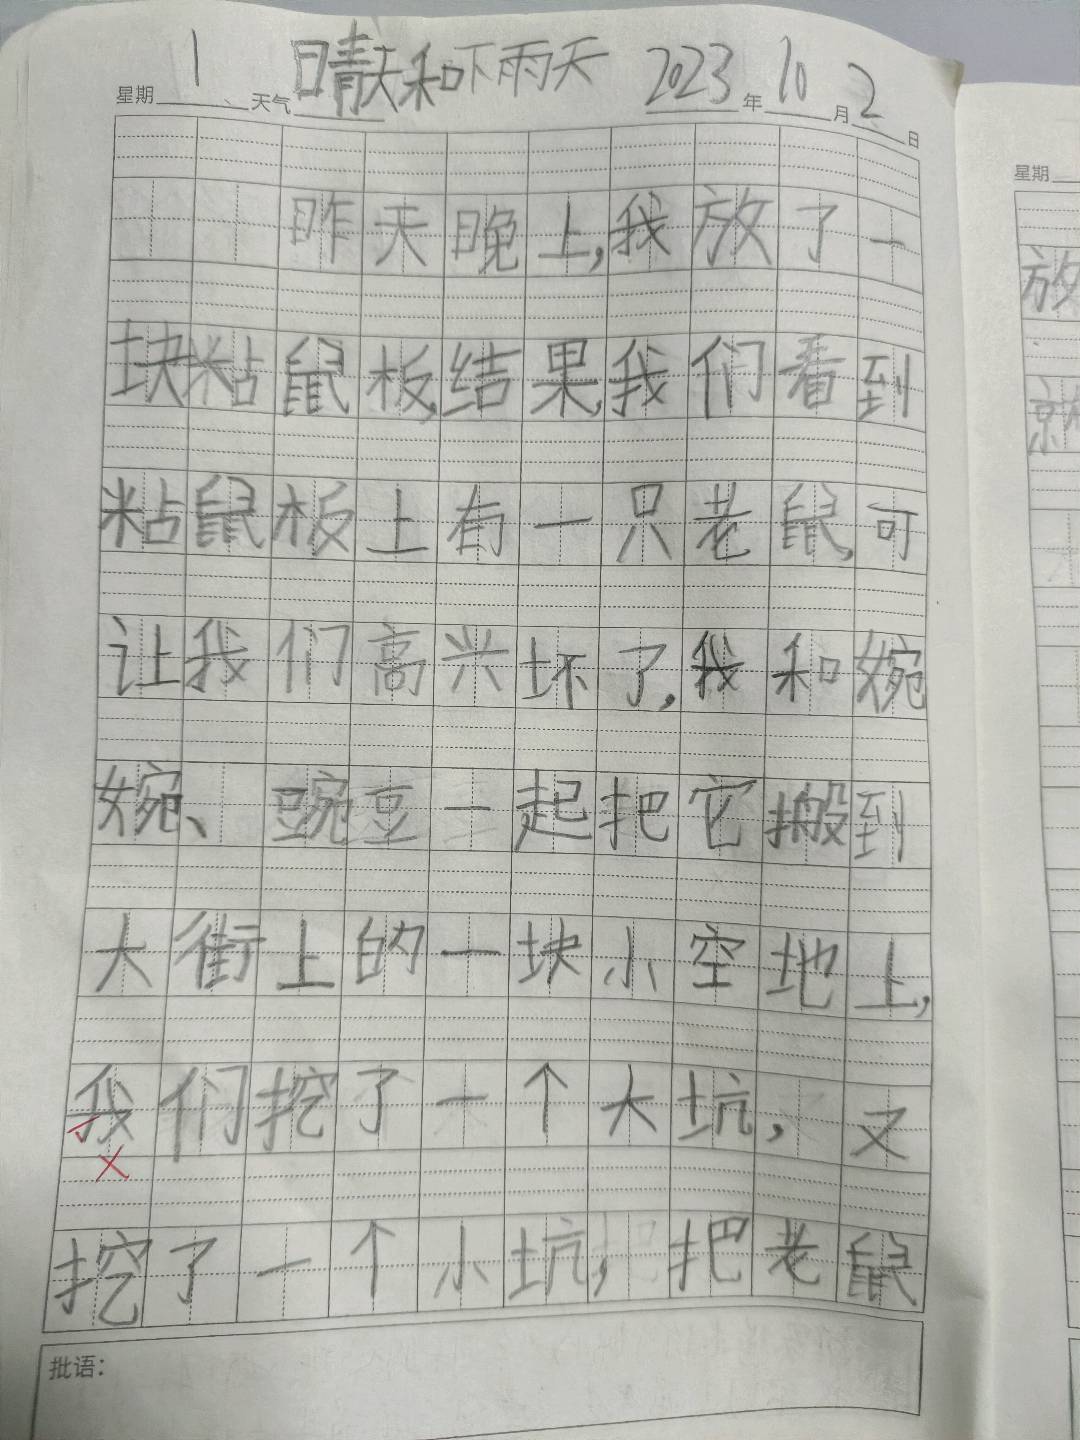 星期 1 天气 晴天和下雨天 2023年10月2日
昨天晚上,我放了一
块粘鼠板,结果,我们看到
粘鼠板上有一只老鼠,可
让我们高兴坏了,我和婉
婉、豌豆一起把它搬到
大街上的一块小空地上,
我们挖了一个大坑,又
挖了一个小坑,把老鼠
批语:
星期
放